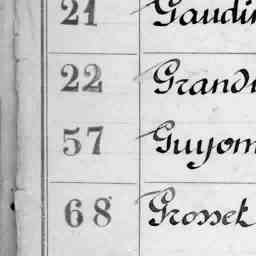 21 Gaudin
22 Grand
57 Guyom
68 Grosset